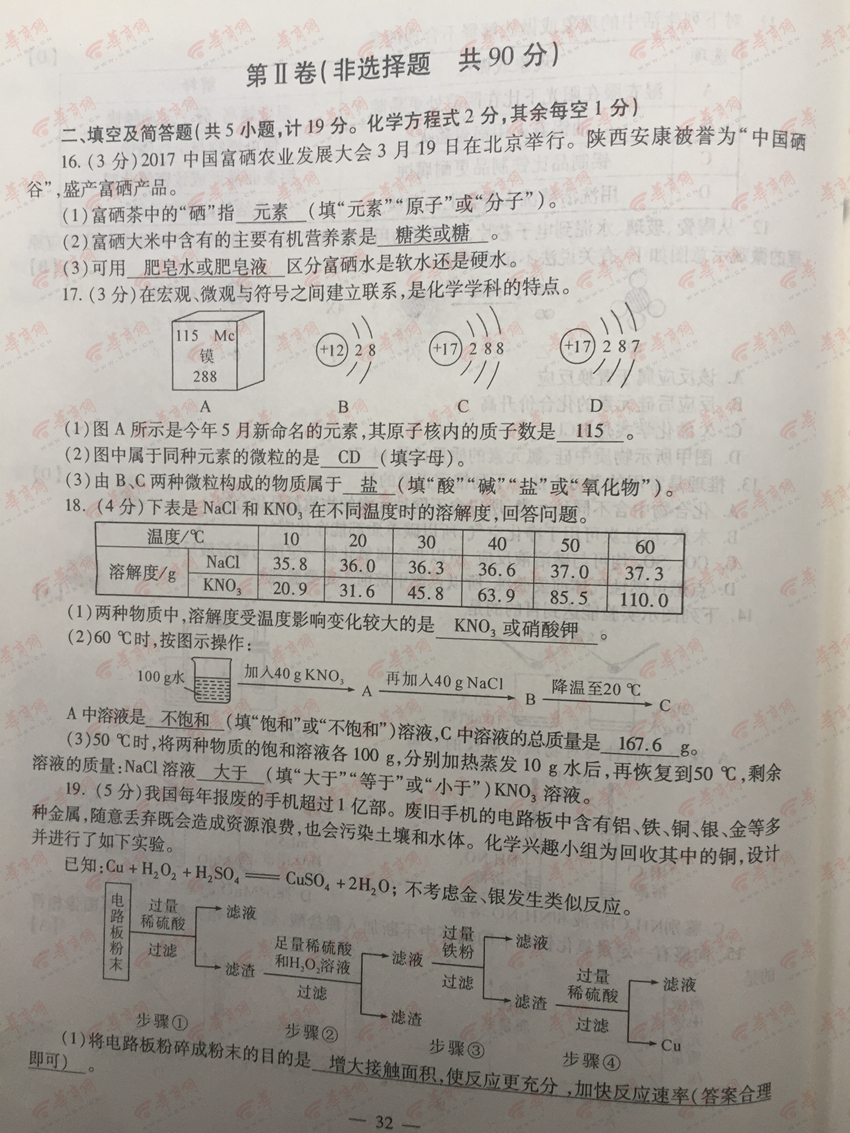 第Ⅱ卷(非选择题 共90分)
二、填空及简答题(共5小题,计19分。化学方程式2分,其余每空1分)
16.(3分)2017中国富硒农业发展大会3月19日在北京举行。陕西安康被誉为“中国硒
谷”,盛产富硒产品。
(1)富硒茶中的“硒”指 元素 (填“元素”“原子”或“分子”)。
(2)富硒大米中含有的主要有机营养素是 糖类或糖 。
(3)可用 肥皂水或肥皂液 区分富硒水是软水还是硬水。
17.(3分)在宏观、微观与符号之间建立联系,是化学学科的特点。
115 Mc
镆
288
+12 2 8
+17 2 8 8
+17 2 8 7
A B C D
(1)图A所示是今年5月新命名的元素,其原子核内的质子数是 115 。
(2)图中属于同种元素的微粒的是 CD (填字母)。
(3)由B、C两种微粒构成的物质属于 盐 (填“酸”“碱”“盐”或“氧化物”)。
18.(4分)下表是NaCl和KNO₃在不同温度时的溶解度,回答问题。
温度/℃ 10 20 30 40 50 60
溶解度/g NaCl 35.8 36.0 36.3 36.6 37.0 37.3
KNO₃ 20.9 31.6 45.8 63.9 85.5 110.0
(1)两种物质中,溶解度受温度影响变化较大的是 KNO₃或硝酸钾 。
(2)60 ℃时,按图示操作:
100 g水 加入40 g KNO₃ A 再加入40 g NaCl B 降温至20 ℃ C
A中溶液是 不饱和 (填“饱和”或“不饱和”)溶液,C中溶液的总质量是 167.6 g。
(3)50 ℃时,将两种物质的饱和溶液各100 g,分别加热蒸发10 g水后,再恢复到50 ℃,剩余
溶液的质量:NaCl溶液 大于 (填“大于”“等于”或“小于”)KNO₃溶液。
19.(5分)我国每年报废的手机超过1亿部。废旧手机的电路板中含有铝、铁、铜、银、金等多
种金属,随意丢弃既会造成资源浪费,也会污染土壤和水体。化学兴趣小组为回收其中的铜,设计
并进行了如下实验。
已知:Cu+H₂O₂+H₂SO₄══CuSO₄+2H₂O;不考虑金、银发生类似反应。
电路板粉末
过量
稀硫酸
过滤
滤液
滤渣
足量稀硫酸
和H₂O₂溶液
过滤
滤液
滤渣
过量
铁粉
过滤
滤液
滤渣
过量
稀硫酸
过滤
滤液
Cu
步骤① 步骤② 步骤③ 步骤④
(1)将电路板粉碎成粉末的目的是 增大接触面积,使反应更充分,加快反应速率(答案合理
即可) 。
— 32 —
华育网